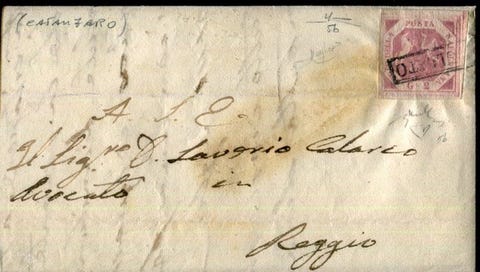 (CATANZARO)
4
56
POSTA
NAPOLETANA
G. 2
A S. E.
Il Sig.no D. Saverio Calarco
Avvocato in
Reggio